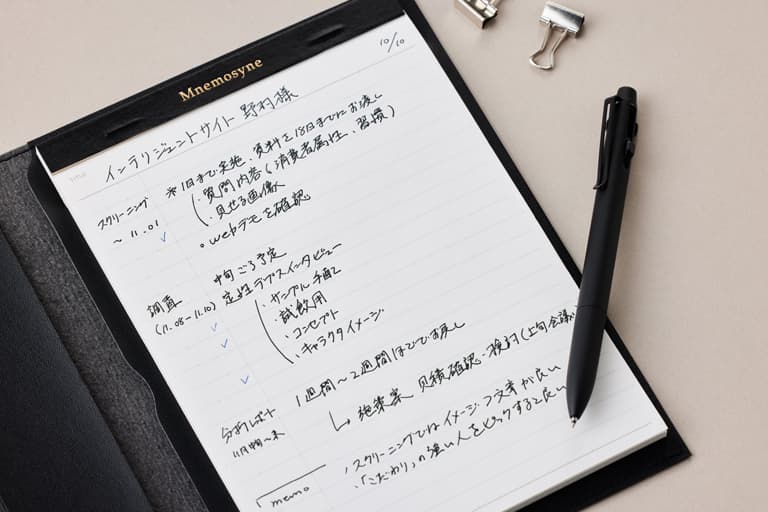 Mnemosyne
10/10
TITLE
インテリジェントサイト 野村様
スクリーニング
～11.01
※1日まで実施、資料を18日までにお渡し
・質問内容(消費者属性、習慣)
・見せる画像
・webデモを確認
調査
(11.08-11.10)
中旬ごろ予定
定性デプスインタビュー
・サンプル手配
・試飲用
・コンセプト
・キャラクタイメージ
分析レポート
11月中旬～末
1週間～2週間ほどでお戻し
↳ 施策案、見積確認・検討(上旬会議
memo
・スクリーニングではイメージつく文章が良い
・「こだわり」の強い人をピックすると良い